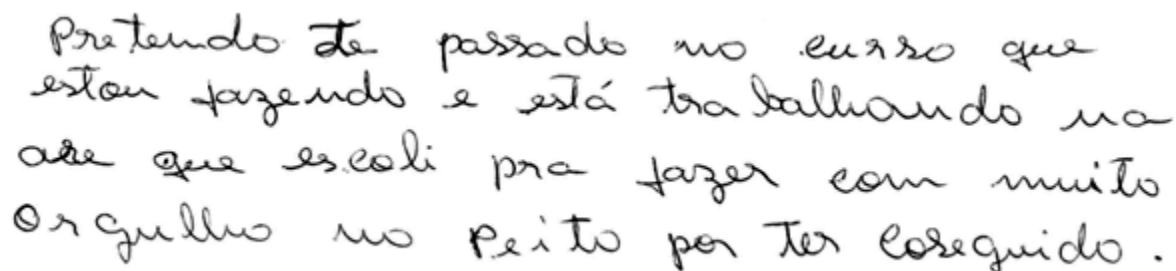 Pretendo te passado no curso que
estou fazendo e está trabalhando na
are que escoli pra fazer com muito
orgulho no peito por ter coseguido.